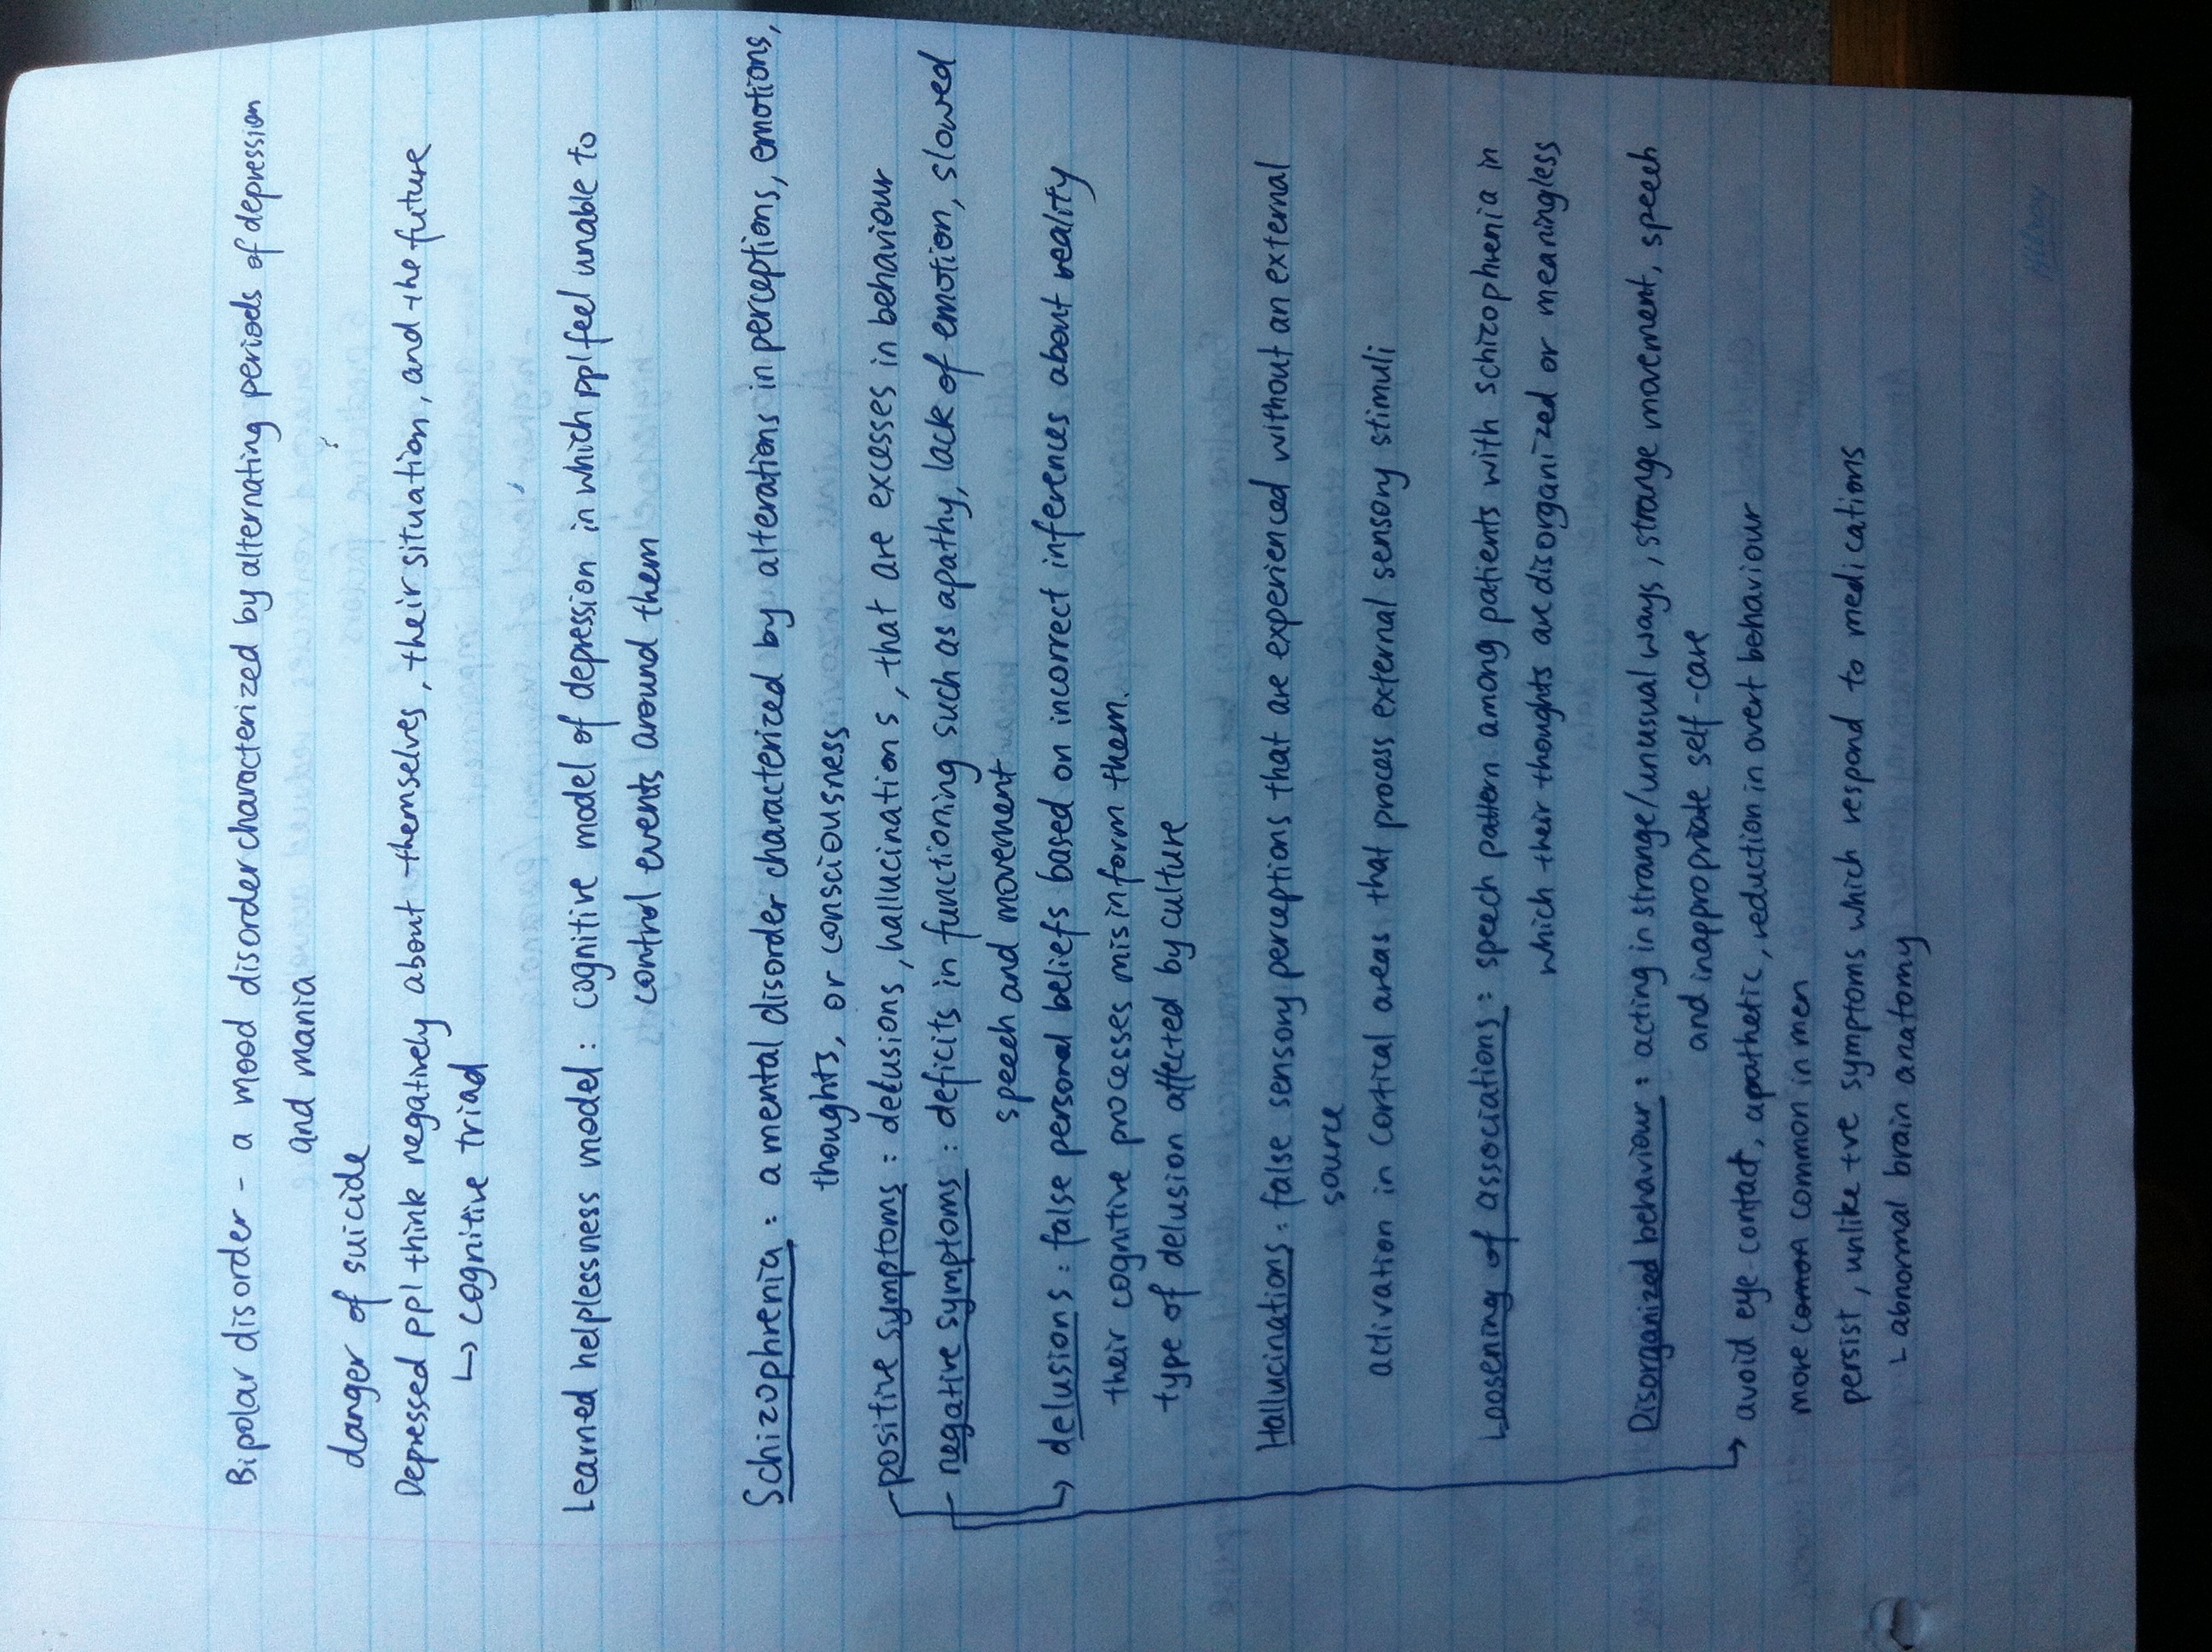 Bipolar disorder - a mood disorder characterized by alternating periods of depression
and mania
danger of suicide
Depressed ppl think negatively about themselves, their situation, and the future
↳ cognitive triad
Learned helplessness model: cognitive model of depression in which ppl feel unable to
control events around them
Schizophrenia: a mental disorder characterized by alterations in perceptions, emotions,
thoughts, or consciousness
positive symptoms: delusions, hallucinations, that are excesses in behaviour
negative symptoms: deficits in functioning such as apathy, lack of emotion, slowed
speech and movement
↳ delusions: false personal beliefs based on incorrect inferences about reality
their cognitive processes misinform them.
type of delusion affected by culture
Hallucinations: false sensory perceptions that are experienced without an external
source
activation in cortical areas that process external sensory stimuli
Loosening of associations: speech pattern among patients with schizophrenia in
which their thoughts are disorganized or meaningless
Disorganized behaviour: acting in strange/unusual ways, strange movement, speech
and inappropriate self-care
↳ avoid eye contact, apathetic, reduction in overt behaviour
more common common in men
persist, unlike +ve symptoms which respond to medications
↳ abnormal brain anatomy
Hilroy